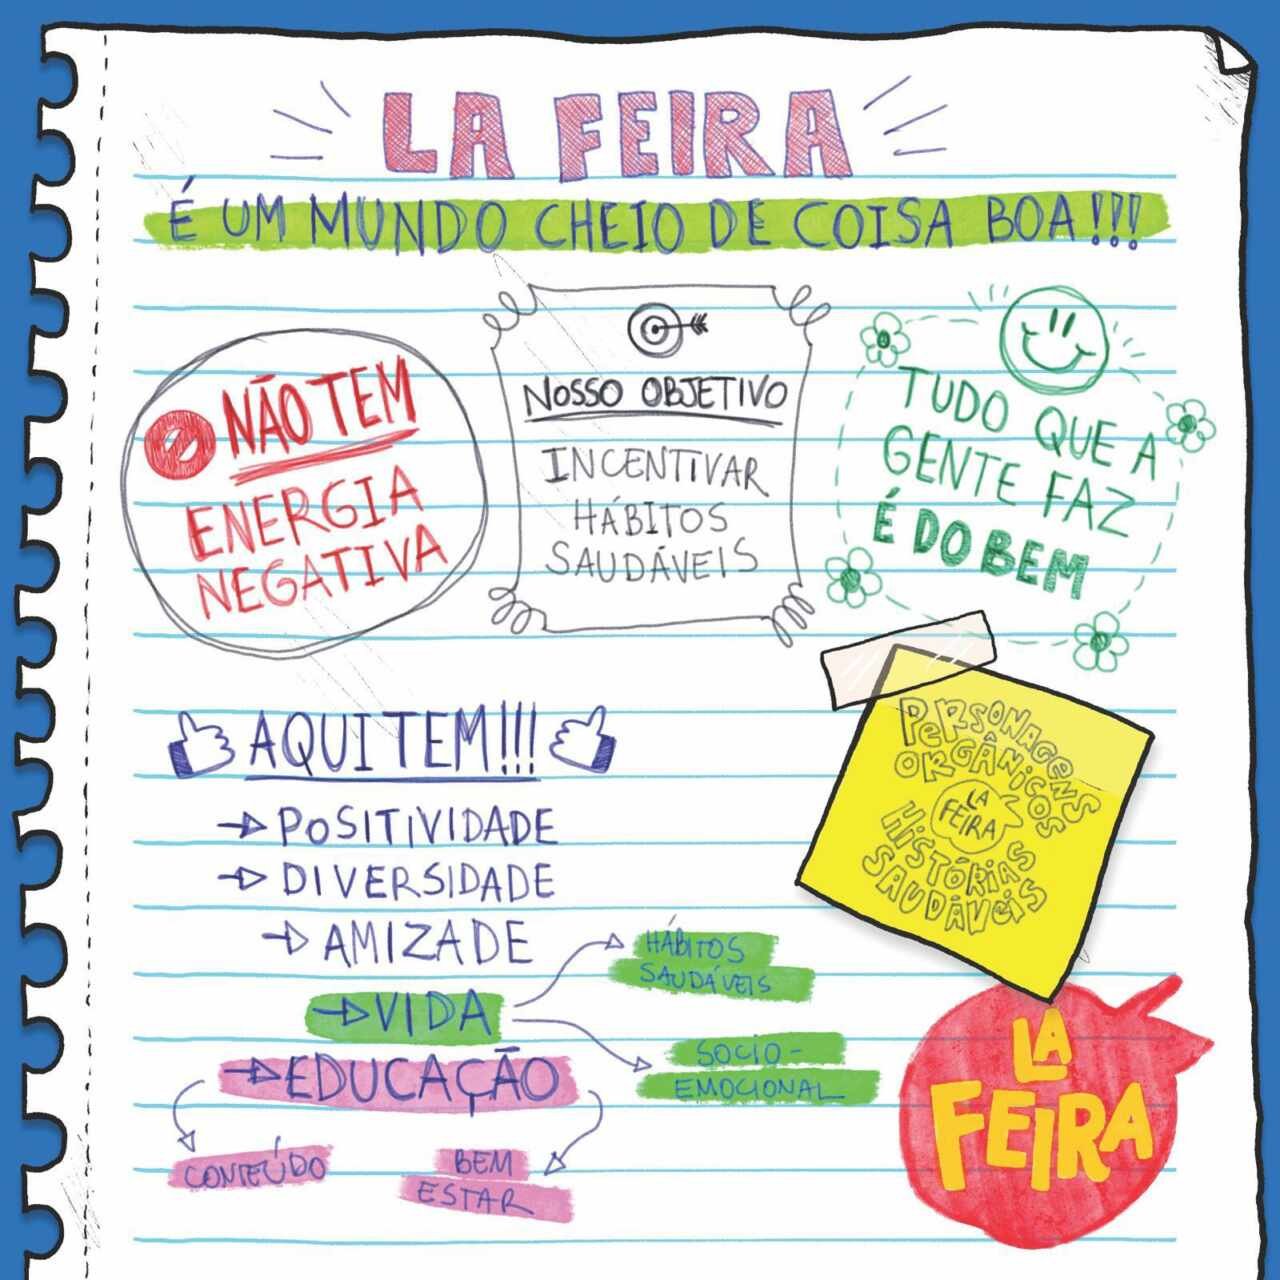 LA FEIRA
É UM MUNDO CHEIO DE COISA BOA!!!
NÃO TEM
ENERGIA
NEGATIVA
NOSSO OBJETIVO
INCENTIVAR
HÁBITOS
SAUDÁVEIS
TUDO QUE A
GENTE FAZ
É DO BEM
AQUI TEM!!!
POSITIVIDADE
DIVERSIDADE
AMIZADE
VIDA
HÁBITOS
SAUDÁVEIS
SOCIO-
EMOCIONAL
EDUCAÇÃO
CONTEÚDO
BEM
ESTAR
PERSONAGENS
ORGÂNICOS
LA
FEIRA
HISTÓRIAS
SAUDÁVEIS
LA
FEIRA